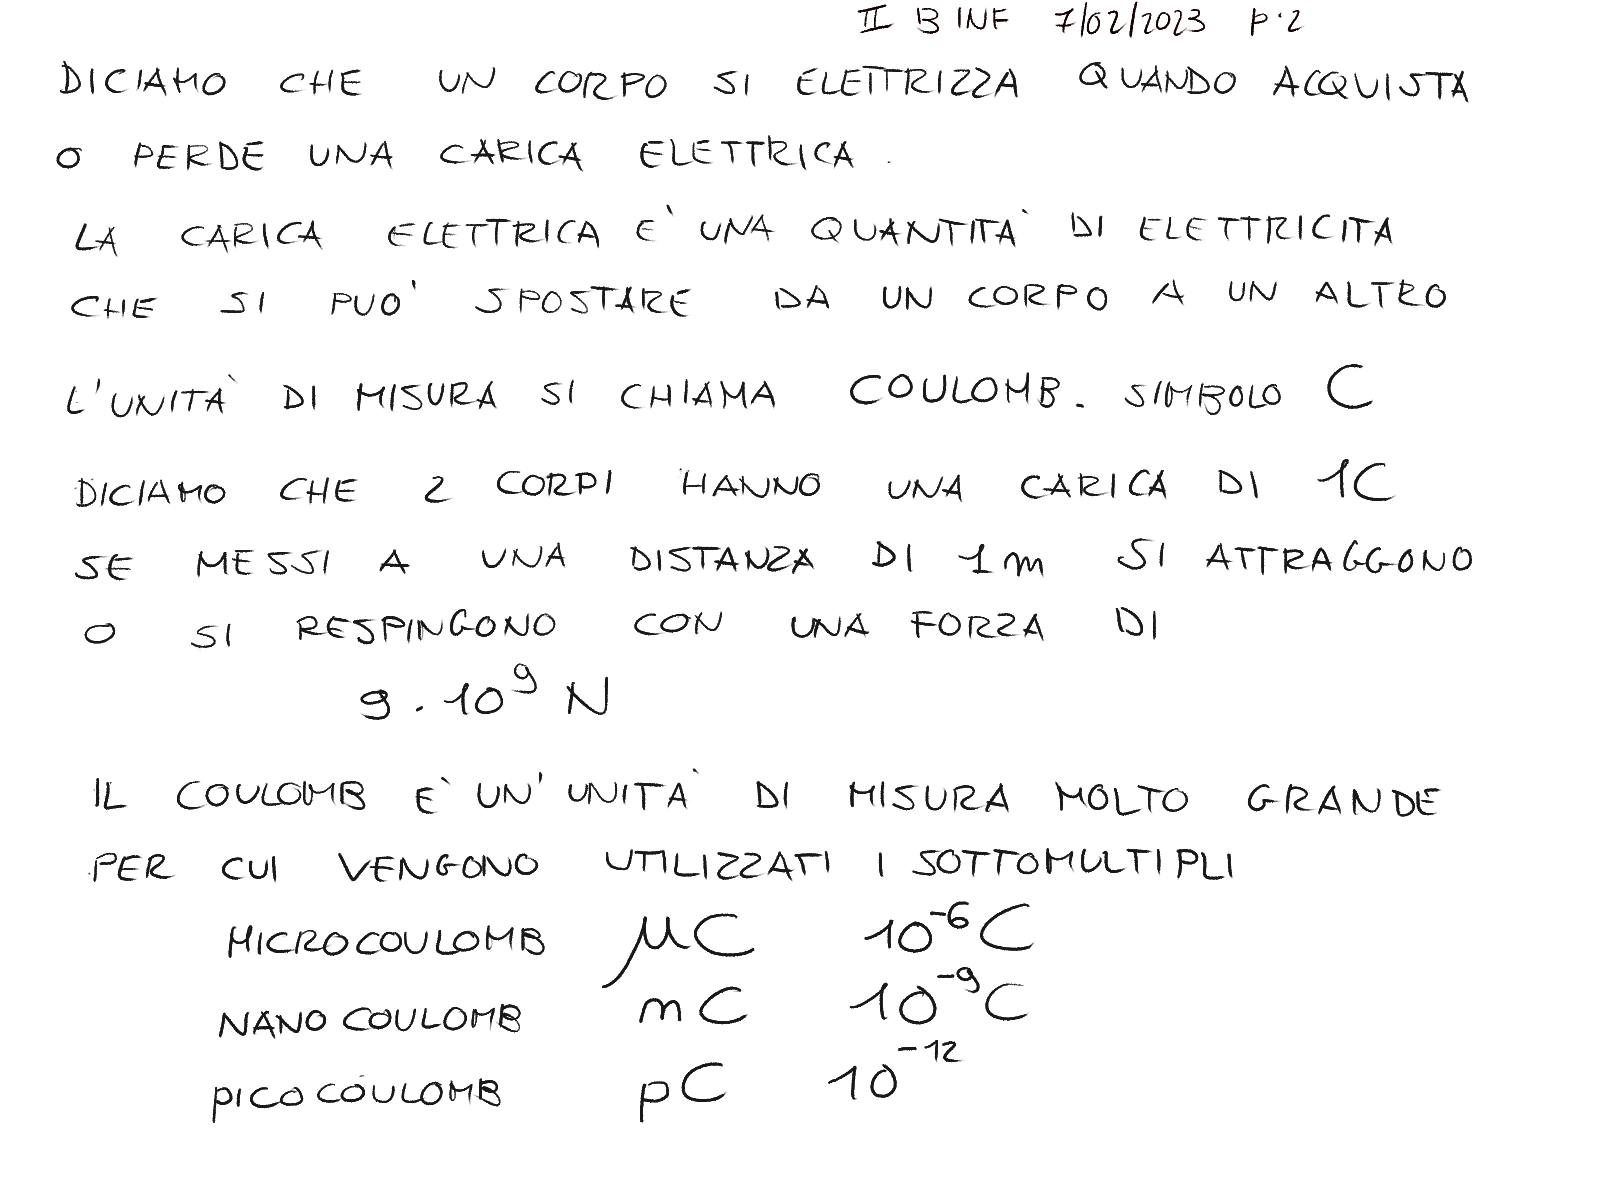 II B INF 7/02/2023 p.2
DICIAMO CHE UN CORPO SI ELETTRIZZA QUANDO ACQUISTA
O PERDE UNA CARICA ELETTRICA.
LA CARICA ELETTRICA E` UNA QUANTITA` DI ELETTRICITA
CHE SI PUO' SPOSTARE DA UN CORPO A UN ALTRO
L'UNITA` DI MISURA SI CHIAMA COULOMB. SIMBOLO C
DICIAMO CHE 2 CORPI HANNO UNA CARICA DI 1C
SE MESSI A UNA DISTANZA DI 1m SI ATTRAGGONO
O SI RESPINGONO CON UNA FORZA DI
9 · 10⁹ N
IL COULOMB E` UN'UNITA` DI MISURA MOLTO GRANDE
PER CUI VENGONO UTILIZZATI I SOTTOMULTIPLI
MICROCOULOMB μC 10⁻⁶ C
NANO COULOMB nC 10⁻⁹ C
PICO COULOMB pC 10⁻¹²